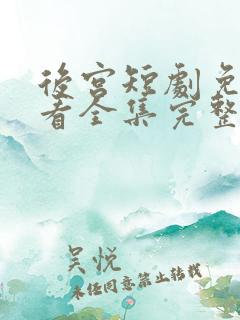 後宮短劇免
看全集完整
吴悦
未经同意禁止转载